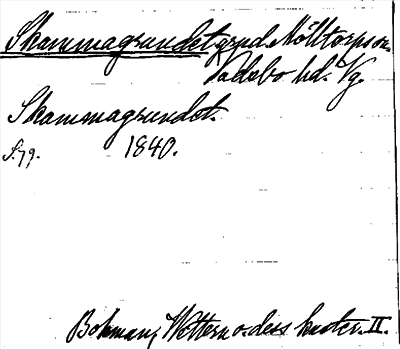 Skammagrundet, grund. Mölltorps sn.
Vadsbo hd. Vg.
Skammagrundet.
S. 79. 1840.
Bohman, Wettern o. dess kuster. II.